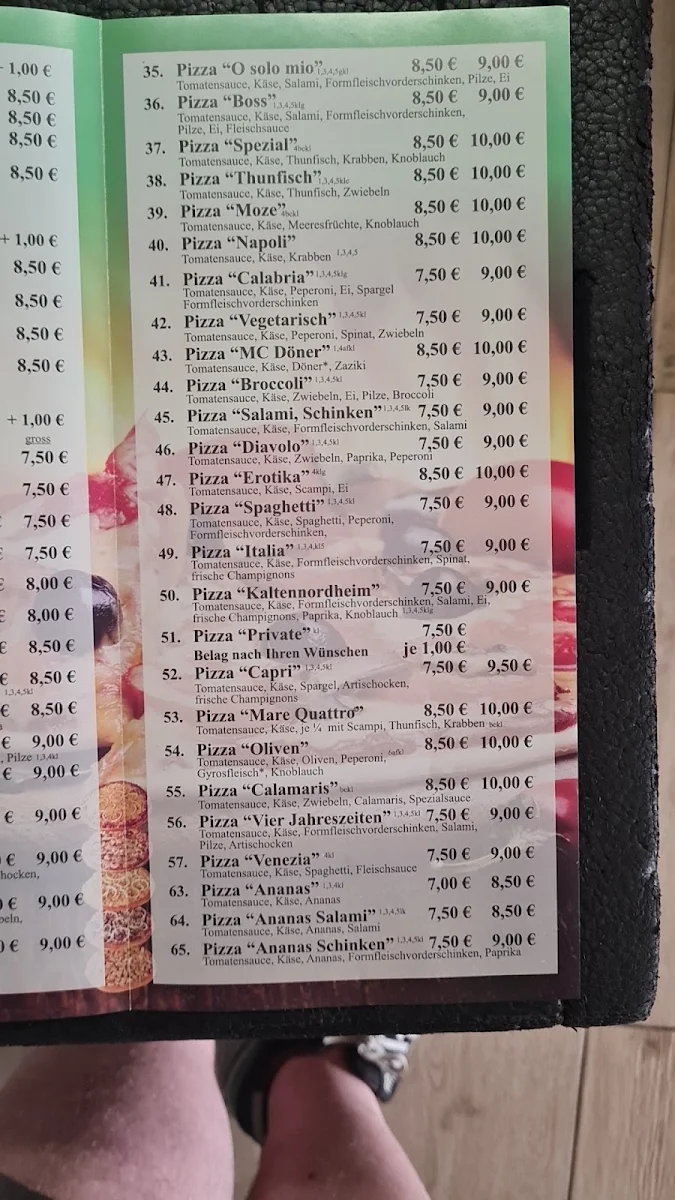 - 1,00 €
8,50 €
8,50 €
8,50 €
8,50 €
+ 1,00 €
8,50 €
8,50 €
8,50 €
8,50 €
+ 1,00 €
gross
7,50 €
7,50 €
7,50 €
7,50 €
€ 8,00 €
€ 8,00 €
€ 8,50 €
€ 8,50 €
1,3,4,5kl
€ 8,50 €
€ 9,00 €
, Pilze 1,3,4kl
€ 9,00 €
€ 9,00 €
€ 9,00 €
hocken,
€ 9,00 €
beln,
€ 9,00 €
35. Pizza “O solo mio” 8,50 € 9,00 €
Tomatensauce, Käse, Salami, Formfleischvorderschinken, Pilze, Ei
36. Pizza “Boss” 1,3,4,5klg 8,50 € 9,00 €
Tomatensauce, Käse, Salami, Formfleischvorderschinken,
Pilze, Ei, Fleischsauce
37. Pizza “Spezial” 4bckl 8,50 € 10,00 €
Tomatensauce, Käse, Thunfisch, Krabben, Knoblauch
38. Pizza “Thunfisch” 8,50 € 10,00 €
Tomatensauce, Käse, Thunfisch, Zwiebeln
39. Pizza “Moze” 4bckl 8,50 € 10,00 €
Tomatensauce, Käse, Meeresfrüchte, Knoblauch
40. Pizza “Napoli” 8,50 € 10,00 €
Tomatensauce, Käse, Krabben 1,3,4,5
41. Pizza “Calabria” 1,3,4,5klg 7,50 € 9,00 €
Tomatensauce, Käse, Peperoni, Ei, Spargel
Formfleischvorderschinken
42. Pizza “Vegetarisch” 1,3,4,5kl 7,50 € 9,00 €
Tomatensauce, Käse, Peperoni, Spinat, Zwiebeln
43. Pizza “MC Döner” 1,4afkl 8,50 € 10,00 €
Tomatensauce, Käse, Döner*, Zaziki
44. Pizza “Broccoli” 1,3,4,5kl 7,50 € 9,00 €
Tomatensauce, Käse, Zwiebeln, Ei, Pilze, Broccoli
45. Pizza “Salami, Schinken” 1,3,4,5lk 7,50 € 9,00 €
Tomatensauce, Käse, Formfleischvorderschinken, Salami
46. Pizza “Diavolo” 1,3,4,5kl 7,50 € 9,00 €
Tomatensauce, Käse, Zwiebeln, Paprika, Peperoni
47. Pizza “Erotika” 4klg 8,50 € 10,00 €
Tomatensauce, Käse, Scampi, Ei
48. Pizza “Spaghetti” 1,3,4,5kl 7,50 € 9,00 €
Tomatensauce, Käse, Spaghetti, Peperoni,
Formfleischvorderschinken,
49. Pizza “Italia” 1,3,4,kl5 7,50 € 9,00 €
Tomatensauce, Käse, Formfleischvorderschinken, Spinat,
frische Champignons
50. Pizza “Kaltennordheim” 7,50 € 9,00 €
Tomatensauce, Käse, Formfleischvorderschinken, Salami, Ei,
frische Champignons, Paprika, Knoblauch 1,3,4,5klg
51. Pizza “Private” 7,50 €
Belag nach Ihren Wünschen je 1,00 €
52. Pizza “Capri” 1,3,4,5kl 7,50 € 9,50 €
Tomatensauce, Käse, Spargel, Artischocken,
frische Champignons
53. Pizza “Mare Quattro” 8,50 € 10,00 €
Tomatensauce, Käse, je ¼ mit Scampi, Thunfisch, Krabben bckl
54. Pizza “Oliven” 8,50 € 10,00 €
Tomatensauce, Käse, Oliven, Peperoni, 6afkl
Gyrosfleisch*, Knoblauch
55. Pizza “Calamaris” bckl 8,50 € 10,00 €
Tomatensauce, Käse, Zwiebeln, Calamaris, Spezialsauce
56. Pizza “Vier Jahreszeiten” 1,3,4,5kl 7,50 € 9,00 €
Tomatensauce, Käse, Formfleischvorderschinken, Salami,
Pilze, Artischocken
57. Pizza “Venezia” 4kl 7,50 € 9,00 €
Tomatensauce, Käse, Spaghetti, Fleischsauce
63. Pizza “Ananas” 1,3,4kl 7,00 € 8,50 €
Tomatensauce, Käse, Ananas
64. Pizza “Ananas Salami” 1,3,4,5lk 7,50 € 8,50 €
Tomatensauce, Käse, Ananas, Salami
65. Pizza “Ananas Schinken” 1,3,4,5kl 7,50 € 9,00 €
Tomatensauce, Käse, Ananas, Formfleischvorderschinken, Paprika